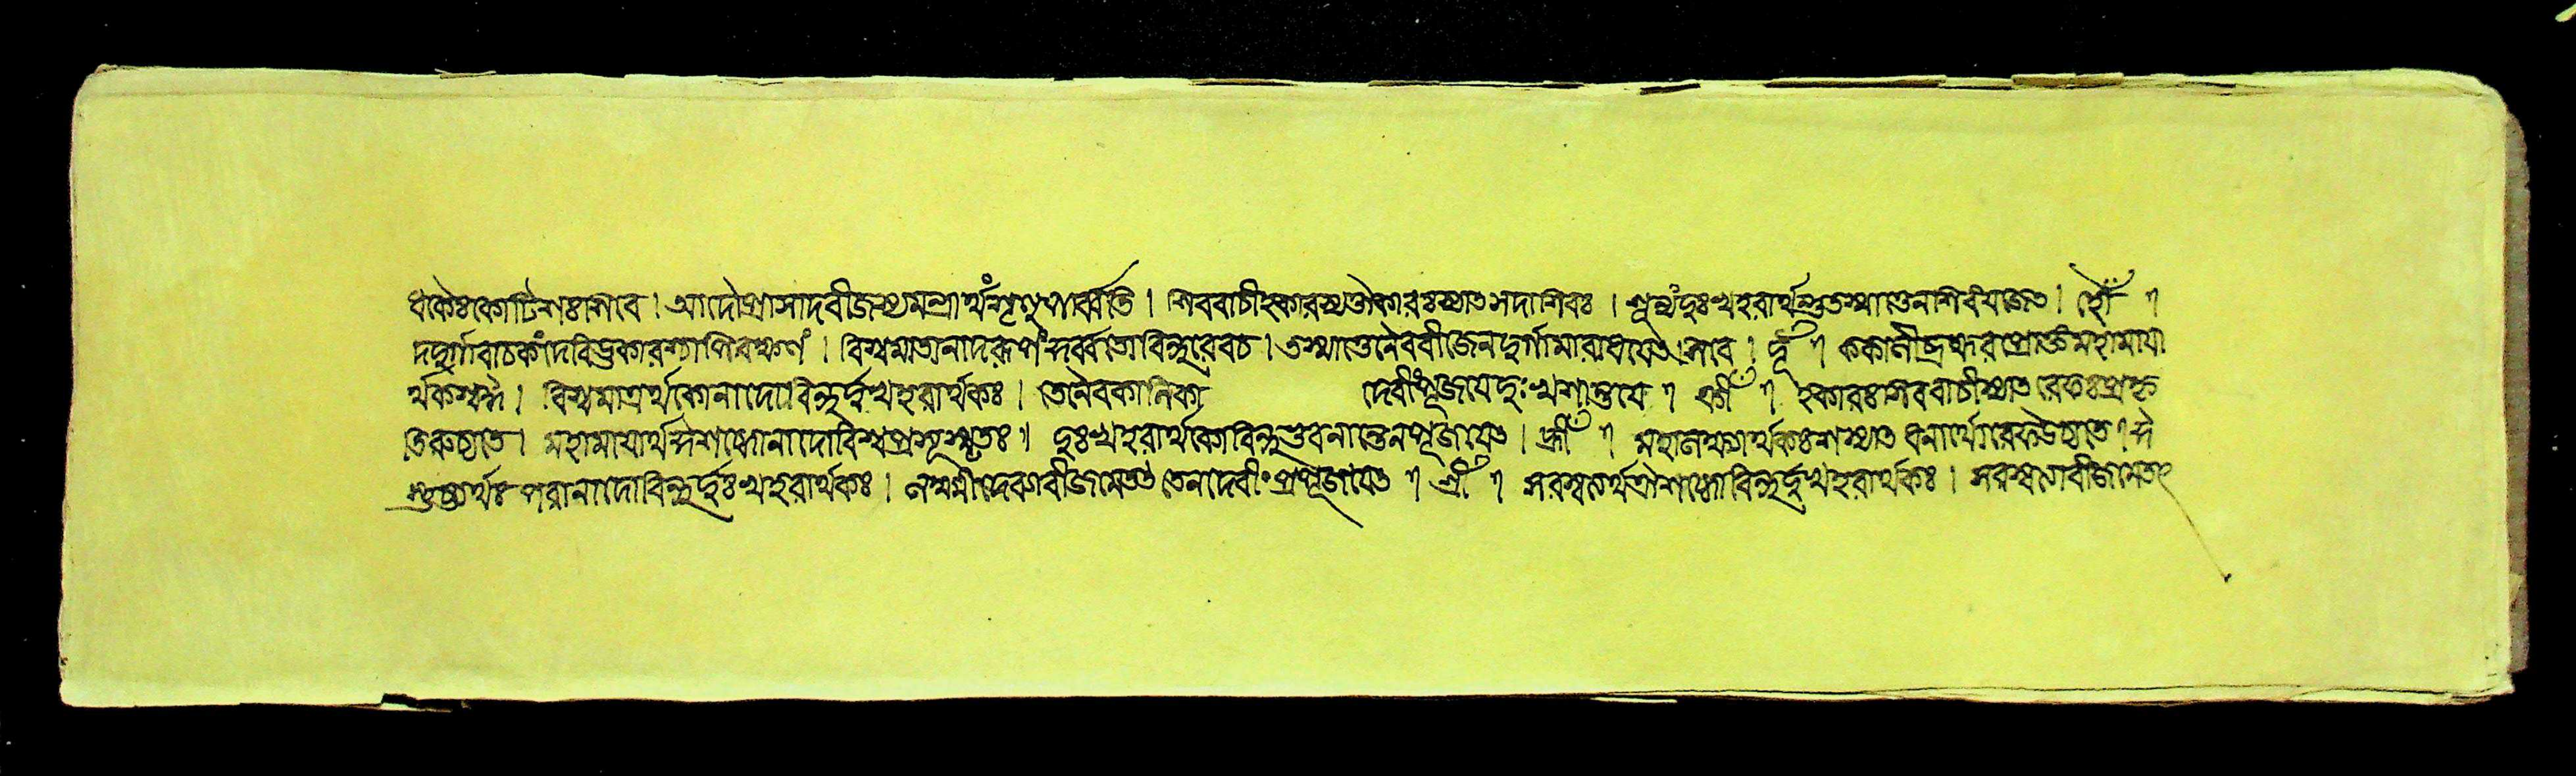 ধকৈঃ কোটিশঃ শিবে । আদৌ প্রাসাদবীজস্য মন্ত্রার্থং শৃণু পার্ব্বতি । শিববাচী হকারস্য ঔকারঃ স্যাৎ সদাশিবঃ । শূন্যং দুঃখহরার্থন্তু তস্মাত্তেন শিবং যজেৎ । হৌঁ ।
দ দুর্গাবাচকং দেবি উকারশ্চাপি রক্ষণং । বিশ্বমাতা নাদরূপং সর্ব্বার্থো বিন্দুরেব চ । তস্মাত্তেনৈব বীজেন দুর্গামারাধয়েৎ শিবে । দূঁ । ক কালী ব্রহ্ম র প্রোক্তং মহামায়া
র্থকশ্চ ঈ । বিশ্বমাত্রর্থকো নাদো বিন্দুর্দুঃখহরার্থকঃ । তেনৈব কালিকা দেবীং পূজয়েদ্দুঃখশান্তয়ে । ক্রীঁ । হকারঃ শিববাচী স্যাৎ রেফঃ প্রকৃ
তিরুচ্যতে । মহামায়ার্থ ঈশব্দো নাদো বিশ্বপ্রসূ স্মৃতঃ ॥ দুঃখহরার্থকো বিন্দুর্ভুবনান্তেন পূজয়েৎ । হ্রীঁ । মহালক্ষ্ম্যর্থকঃ শ স্যাৎ ধনার্থো রেফ উচ্যতে । ঈ
স্তুষ্ট্যর্থঃ পরো নাদো বিন্দুর্দুঃখহরার্থকঃ । লক্ষ্মীদেব্যা বীজমেতৎ তেন দেবীং প্রপূজয়েৎ । শ্রীঁ । সরস্বত্যর্থ ঐ শব্দো বিন্দুর্দুঃখহরার্থকঃ । সরস্বত্যা বীজমেতৎ